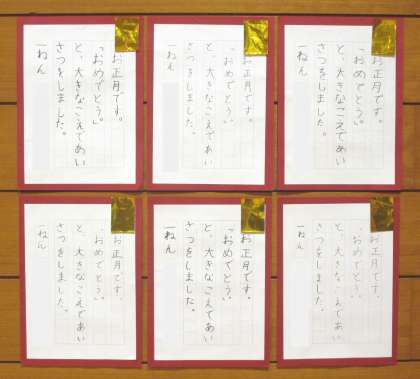 お正月です。
「おめでとう。」
と、大きなこえであい
さつをしました。
一ねん
お正月です。
「おめでとう。」
と、大きなこえであい
さつをしました。
一ねん
お正月です。
「おめでとう。」
と、大きなこえであい
さつをしました。
一ねん
お正月です。
「おめでとう。」
と、大きなこえであい
さつをしました。
一ねん
お正月です。
「おめでとう。」
と、大きなこえであい
さつをしました。
一ねん
お正月です。
「おめでとう。」
と、大きなこえであい
さつをしました。
一ねん